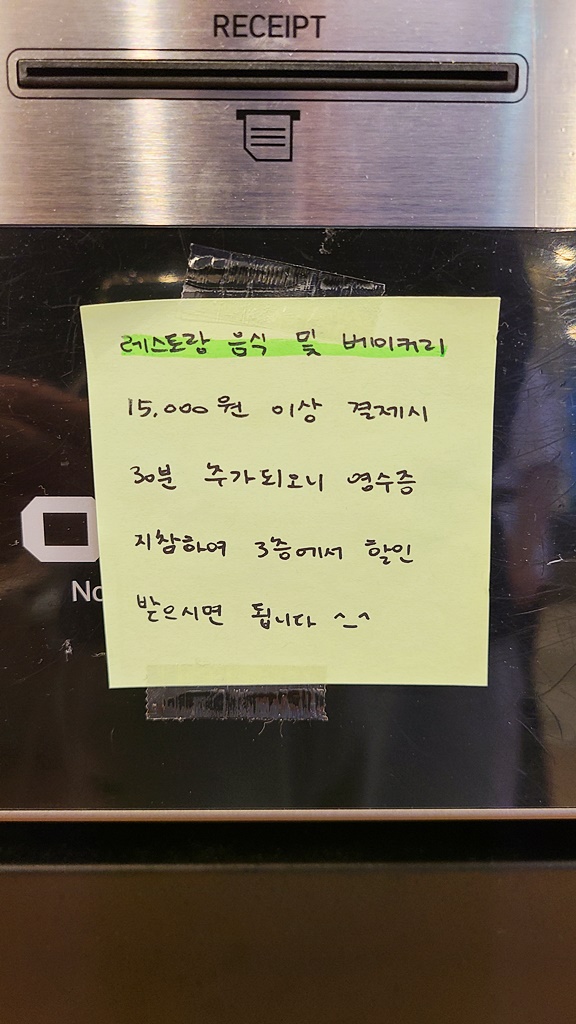 RECEIPT
레스토랑 음식 및 베이커리
15,000원 이상 결제시
30분 추가되오니 영수증
지참하여 3층에서 할인
받으시면 됩니다 ^_^
No